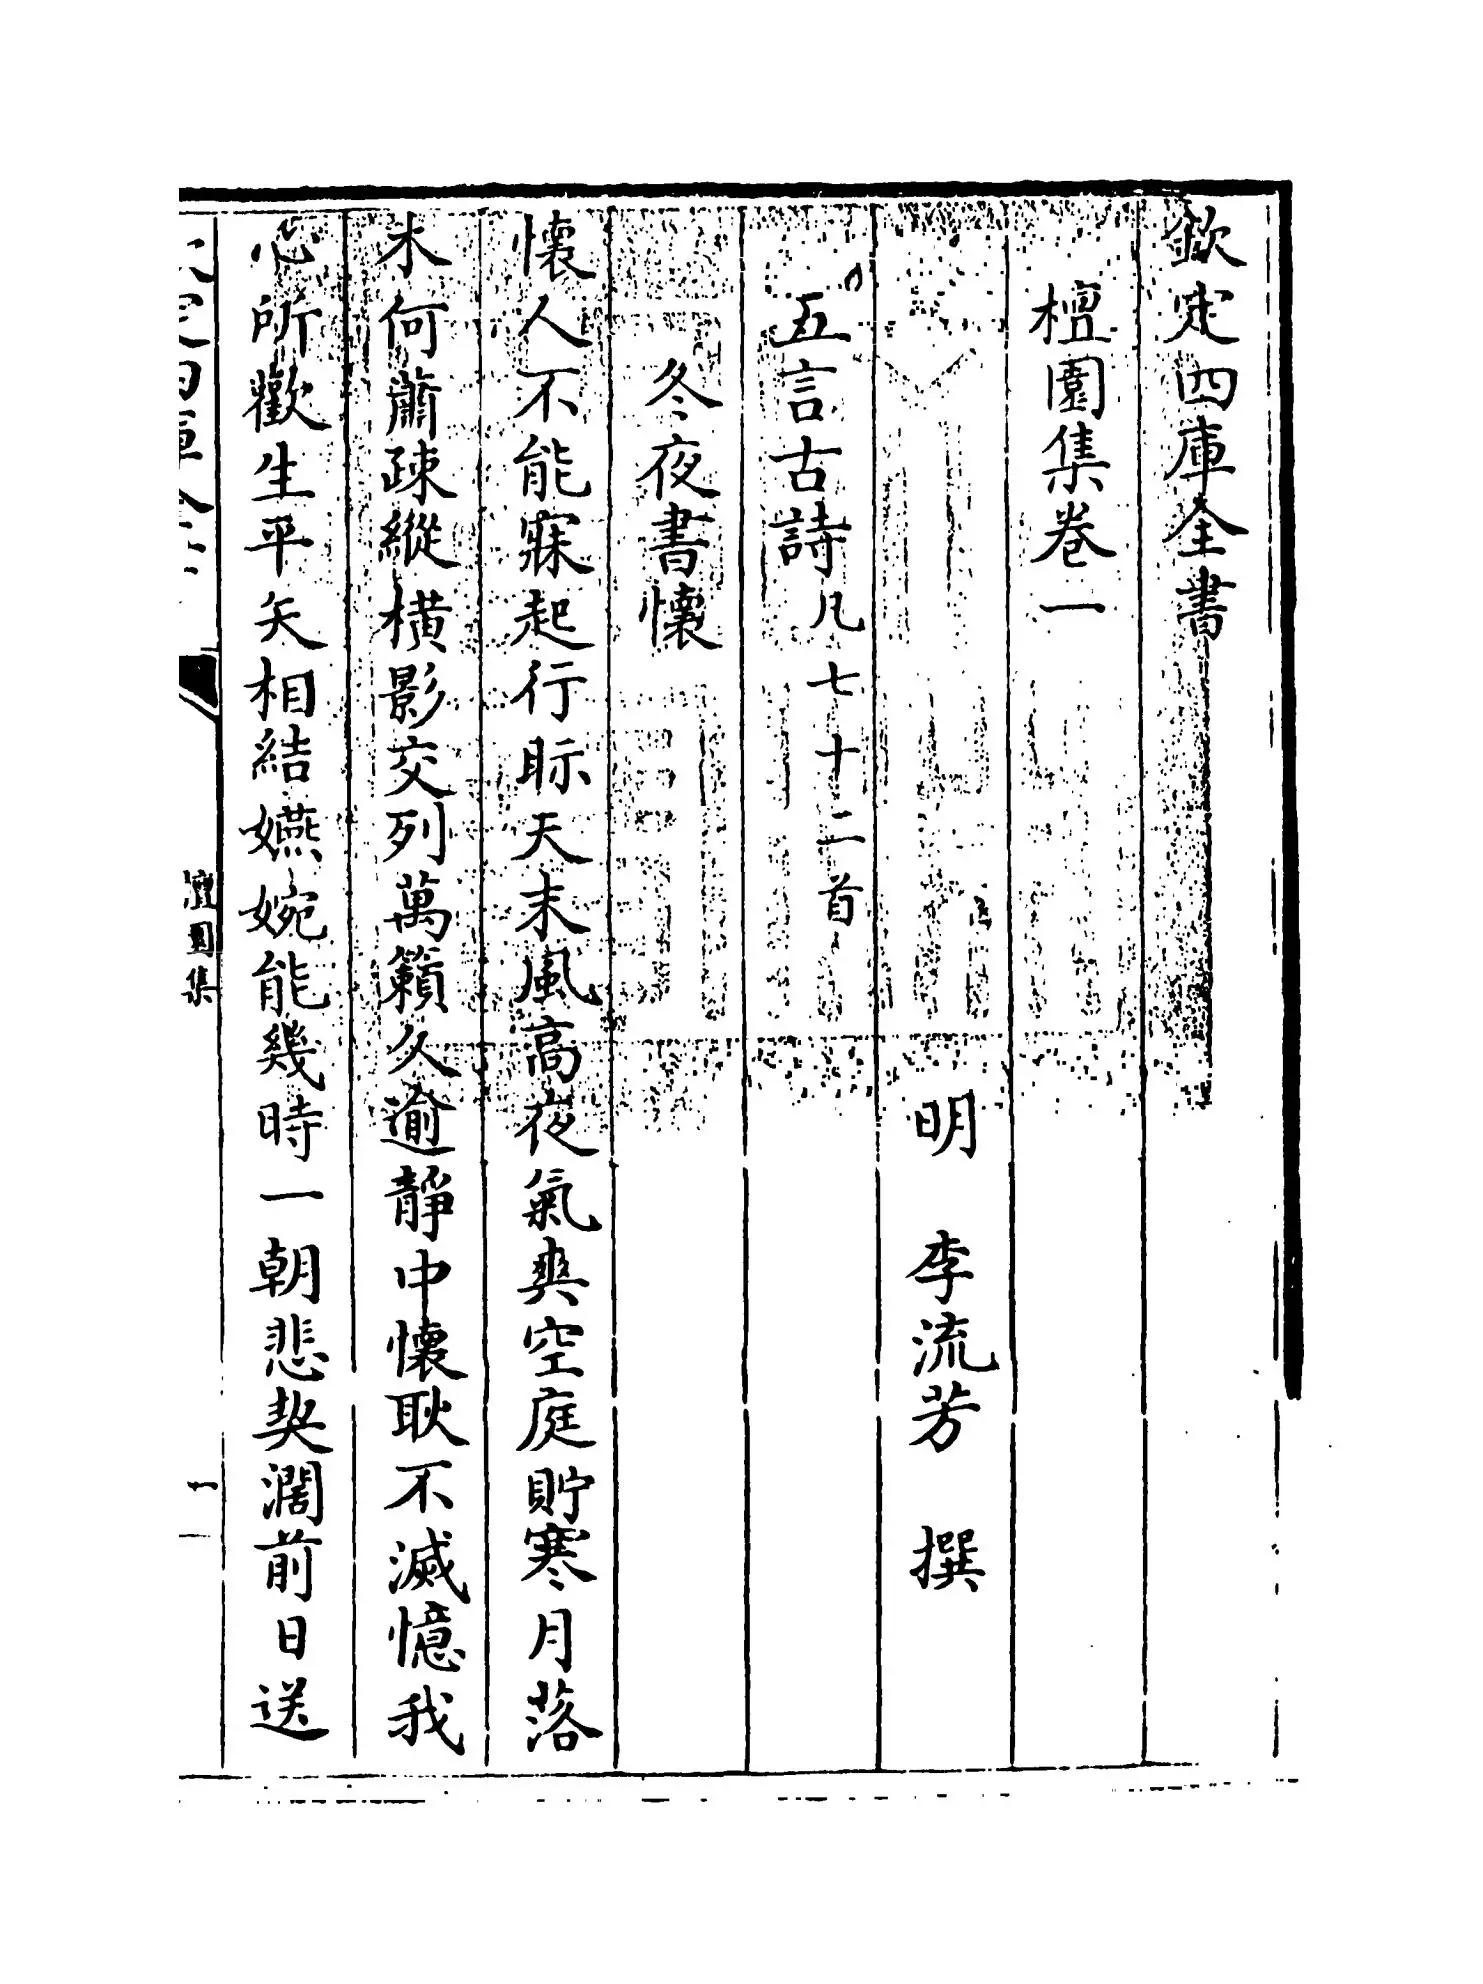 欽定四庫全書
檀園集卷一
明 李流芳 撰
五言古詩凡七十二首
冬夜書懷
懷人不能寐起行眎天末風高夜氣爽空庭貯寒月落
木何蕭疎縱橫影交列萬籟久逾靜中懷耿不滅憶我
心所歡生平矢相結嬿婉能幾時一朝悲契濶前日送
檀園集
一